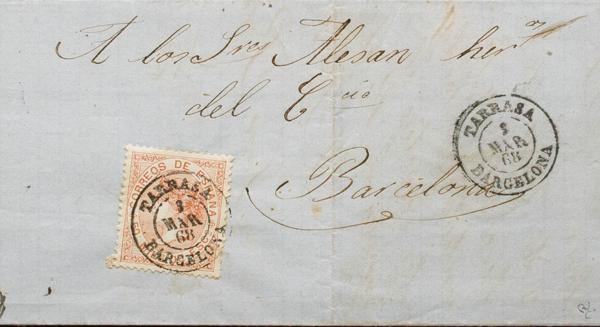 A los Sres Alesan herms
del Ccio
Barcelona
TARRASA
3
MAR
68
BARCELONA
CORREOS DE ESPAÑA
TARRASA
3
MAR
68
BARCELONA